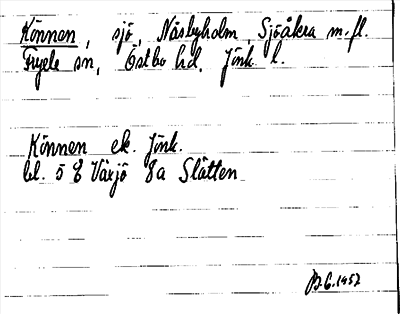 Können, sjö, Näsbyholm, Sjöåkra m.fl.
Fryele sn, Östbo hd. Jönk l.
Können ek. Jönk.
bl. 5 E Växjö 8a Slätten
1952